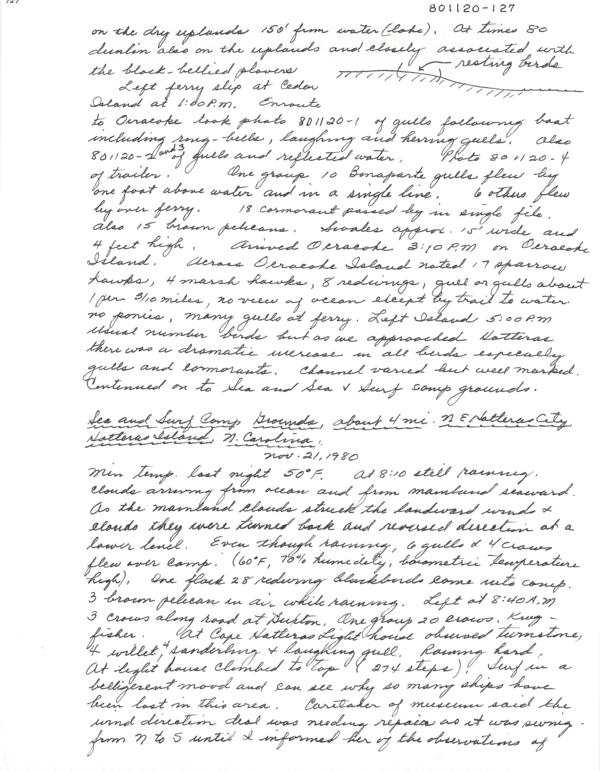 801120-127
on the dry uplands 150' from water (lake). At times 80
dunlin also on the uplands and closely associated with
the black-bellied plovers
resting birds
Left ferry slip at Cedar
Island at 1:00 P.M. Enroute
to Ocracoke took photo 801120-1 of gulls following boat
including ring-bells, laughing and herring gulls. Also
801120-2 and 3 of gulls and reflected water. Photo 801120-4
of trailer. One group 10 Bonaparte gulls flew by
one foot above water and in a single line. 6 others flew
by over ferry. 18 cormorant passed by in single file.
Also 15 brown pelicans. Swales approx. 15' wide and
4 feet high. Arrived Ocracoke 3:10 P.M on Ocracoke
Island. Across Ocracoke Island noted 17 sparrow
hawks, 4 marsh hawks, 8 redwings, gull or gulls about
1 per 3/10 miles, no view of ocean except by trail to water
no ponies, many gulls at ferry. Left Island 5:00 P.M
Usual number birds but as we approached Hatteras
there was a dramatic increase in all birds especially
gulls and cormorants. Channel varied but well marked.
Continued on to Sea and Sea & Surf camp grounds.
Sea and Surf Camp Grounds, about 4 mi. N E Hatteras City
Hatteras Island, N. Carolina.
Nov. 21, 1980
Min temp. last night 50°F. At 8:10 still raining.
Clouds arriving from ocean and from mainland seaward.
As the mainland clouds struck the landward winds &
clouds they were turned back and reversed direction at a
lower level. Even though raining, 6 gulls & 4 crows
flew over camp. (60°F, 70% humidity, barometric temperature
high). One flock 28 redwing blackbirds came into camp.
3 brown pelican in air while raining. Left at 8:40 A.M
3 crows along road at Buxton. One group 20 crows. King-
fisher. At Cape Hatteras Light house observed turnstone,
4 willet, sanderling & laughing gull. Raining hard.
At light house climbed to top (274 steps). Surf in a
belligerent mood and can see why so many ships have
been lost in this area. Caretaker of museum said the
wind direction dial was needing repair as it was swing-
from N to S until I informed her of the observations of